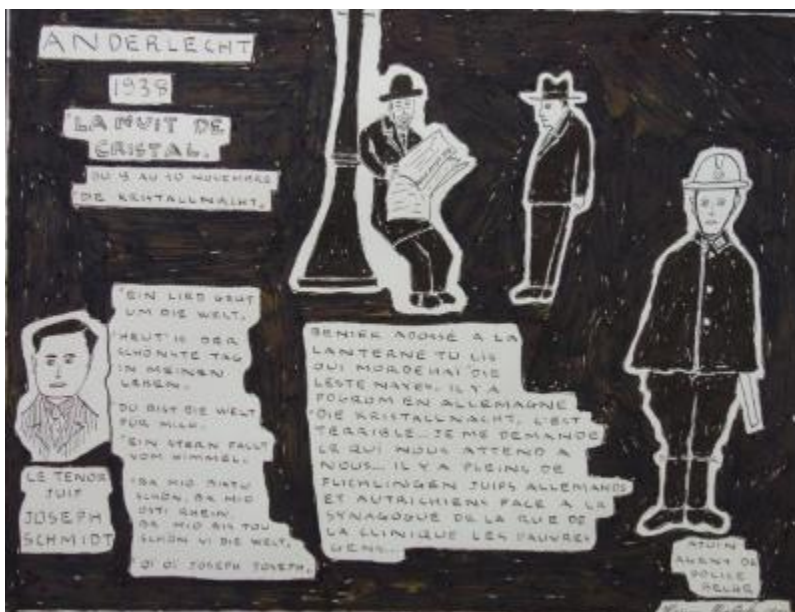 ANDERLECHT
1938
"LA NUIT DE
CRISTAL.
DU 9 AU 10 NOVEMBRE
DIE KRISTALLNACHT.
"EIN LIED GEHT
UM DIE WELT.
"HEUT' IS DER
SCHÖNSTE TAG
IN MEINEN
LEBEN.
DU BIST DIE WELT
FÜR MICH.
"EIN STERN FALLT
VOM HIMMEL.
"BA MIR BISTU
SCHÖN, BA MIR
OSTI RHEIN.
BA MIR BIS TOU
SCHÖN VI DIE WELT.
"OÏ OÏ JOSEPH JOSEPH.
LE TENOR
JUIF
JOSEPH
SCHMIDT
BENIEK ADOSSÉ A LA
LANTERNE TU LIS
OUI MORDEHAÏ DIE
LESTE NAYES. IL Y A
POGROM EN ALLEMAGNE
"DIE KRISTALLNACHT. C'EST
TERRIBLE... JE ME DEMANDE
CE QUI NOUS ATTEND A
NOUS... IL Y A PLEINS DE
FLICHLINGEN JUIFS ALLEMANDS
ET AUTRICHIENS FACE A LA
SYNAGOGUE DE LA RUE DE
LA CLINIQUE LES PAUVRES
GENS...
AGENT DE
POLICE
BELGE